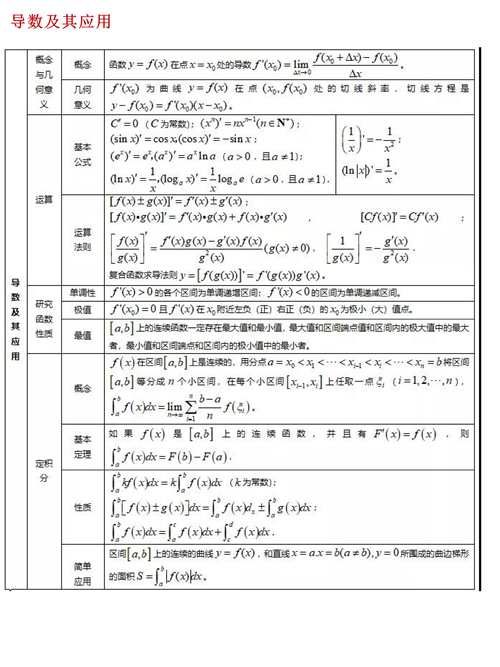 导数及其应用
导数及其应用
概念与几何意义
概念
函数 y = f(x) 在点 x = x₀ 处的导数 f'(x₀) = lim_{Δx→0} (f(x₀ + Δx) − f(x₀))/Δx 。
几何意义
f'(x₀) 为曲线 y = f(x) 在点 (x₀, f(x₀)) 处的切线斜率，切线方程是
y − f(x₀) = f'(x₀)(x − x₀) 。
运算
基本公式
C' = 0（C 为常数）; (xⁿ)' = nxⁿ⁻¹ (n ∈ N*) ;
(sin x)' = cos x, (cos x)' = −sin x ;
(eˣ)' = eˣ, (aˣ)' = aˣ ln a（a > 0，且 a ≠ 1）;
(ln x)' = 1/x, (logₐ x)' = 1/x logₐ e（a > 0，且 a ≠ 1）.
(1/x)' = −1/x² ;
(ln |x|)' = 1/x 。
运算法则
[f(x) ± g(x)]' = f'(x) ± g'(x) ;
[f(x)•g(x)]' = f'(x)•g(x) + f(x)•g'(x) ， [Cf(x)]' = Cf'(x) ;
[f(x)/g(x)]' = (f'(x)g(x) − g'(x)f(x))/g²(x) (g(x) ≠ 0)， [1/g(x)]' = − g'(x)/g²(x) .
复合函数求导法则 y = [f(g(x))]' = f'(g(x))g'(x) 。
研究函数性质
单调性
f'(x) > 0 的各个区间为单调递增区间；f'(x) < 0 的区间为单调递减区间。
极值
f'(x₀) = 0 且 f'(x) 在 x₀ 附近左负（正）右正（负）的 x₀ 为极小（大）值点。
最值
[a,b] 上的连续函数一定存在最大值和最小值，最大值和区间端点值和区间内的极大值中的最大
者，最小值和区间端点和区间内的极小值中的最小者。
定积分
概念
f(x) 在区间 [a,b] 上是连续的，用分点 a = x₀ < x₁ < ··· < xᵢ₋₁ < xᵢ < ··· < xₙ = b 将区间
[a,b] 等分成 n 个小区间，在每个小区间 [xᵢ₋₁, xᵢ] 上任取一点 ξᵢ（i = 1,2,···,n），
∫ₐᵇ f(x)dx = lim_{n→∞} Σ_{i=1}^{n} (b−a)/n f(ξᵢ) 。
基本定理
如果 f(x) 是 [a,b] 上的连续函数，并且有 F'(x) = f(x) ，则
∫ₐᵇ f(x)dx = F(b) − F(a) .
性质
∫ₐᵇ kf(x)dx = k∫ₐᵇ f(x)dx（k 为常数）;
∫ₐᵇ [f(x) ± g(x)]dx = ∫ₐᵇ f(x)dₓ ± ∫ₐᵇ g(x)dx ;
∫ₐᵇ f(x)dx = ∫ₐᶜ f(x)dx + ∫_c^d f(x)dx .
简单应用
区间 [a,b] 上的连续的曲线 y = f(x)，和直线 x = a.x = b(a ≠ b), y = 0 所围成的曲边梯形
的面积 S = ∫ₐᵇ |f(x)|dx 。